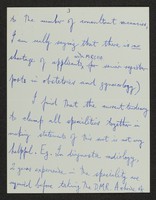 3
to the number of consultant vacancies,
I am really saying that there is no
shortage of applicants for senior registrar
posts in obstetrics and gynaecology)
I find that the current tendency
to clump all specialities together in
making statements of this sort is not very
helpful. E.g. In diagnostic radiology,
years experience in the speciality are
required before taking the DMR.